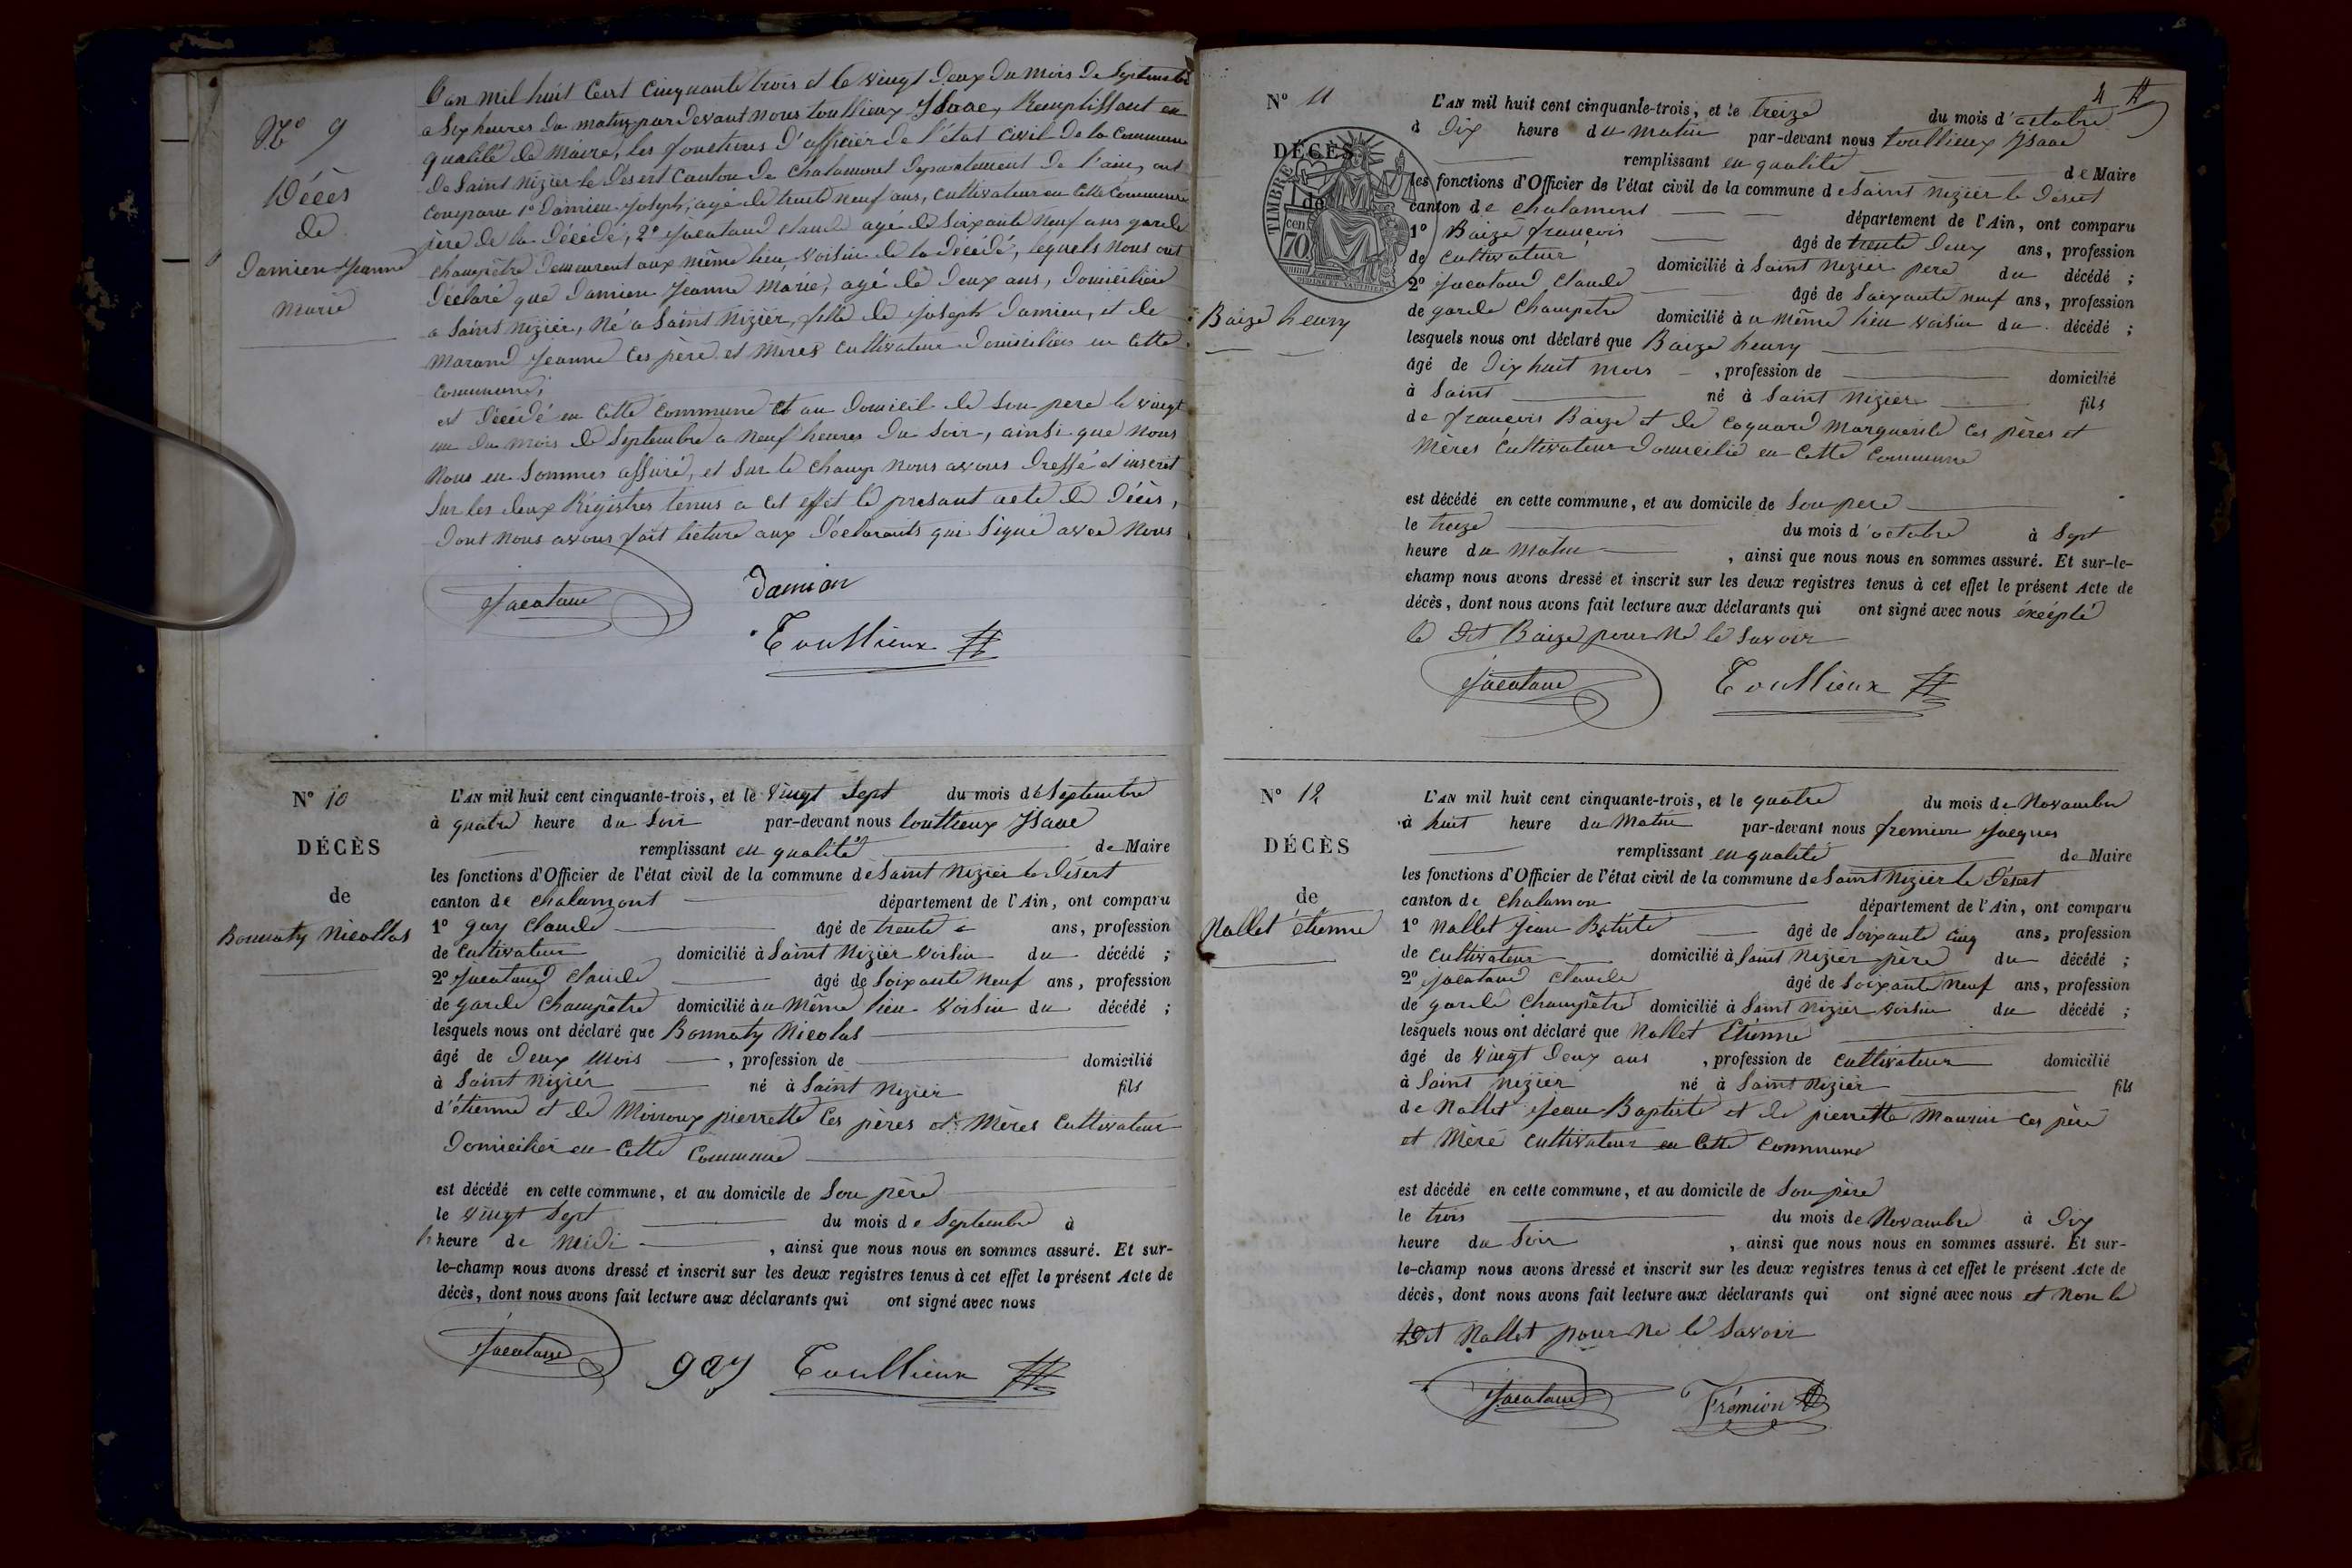 N° 9
Décès
de
Damien Jeanne
Marie
L'an mil huit Cent Cinquante trois et le vingt deux du mois de Septembre
a Six heures du matin par devant nous toullieux Ysaac, Remplissant en
qualité de Maire, les fonctions d'officier de l'état civil de la Commune
de Saint Nizier le Désert Canton de Chalamont département de l'ain, ont
Comparu 1° Damien Joseph, agé de trente neuf ans, Cultivateur en Cette Commune
père de la Décédé, 2° Jacatand Claude agé de Soixante Neuf ans garde
Champêtre demeurent aux même lieu, voisin de la Décédé, lequels nous ont
Déclaré que Damien Jeanne Marie, agé de Deux ans, domiciliée
a Saint Nizier, Né a Saint Nizier, fille de Joseph Damien, et de
Marand Jeanne Ces père et Mères Cultivateur domiciliés en Cette
Commune,
est Décédé en Cette Commune et au domicil de Son pere le vingt
un du mois de Septembre a neuf heures du Soir, ainsi que Nous
Nous en Sommes assuré, et Sur le Champ nous avons Dressé et inscrit
Sur les deux Régistres tenus a Cet effet le présant acte de Décès,
Dont nous avons fait lecture aux Déclarants qui Signé avec Nous
Jacatand Damian
Toullieux
N° 10
DÉCÈS
de
Bonnaty Nicollas
L'AN mil huit cent cinquante-trois, et le Vingt Sept du mois de Septembre
à quatre heure du Soir par-devant nous toullieux Ysaac
remplissant en qualité de Maire
les fonctions d'Officier de l'état civil de la commune de Saint Nizier le Désert
canton de Chalamont département de l'Ain, ont comparu
1° gay Claude âgé de trente ans, profession
de Cultivateur domicilié à Saint Nizier voisin du décédé ;
2° Jacatand Claude âgé de Soixante Neuf ans, profession
de garde Champêtre domicilié à u Même lieu voisin du décédé ;
lesquels nous ont déclaré que Bonnaty Nicolas
âgé de Deux Mois , profession de domicilié
à Saint Nizier né à Saint Nizier fils
d'étienne et de Mirroux pierrette Ces pères et Mères Cultivateur
Domicilier en Cette Commune
est décédé en cette commune, et au domicile de Son père
le Vingt Sept du mois de Septembre à
heure de Midi , ainsi que nous nous en sommes assuré. Et sur-
le-champ nous avons dressé et inscrit sur les deux registres tenus à cet effet le présent Acte de
décès, dont nous avons fait lecture aux déclarants qui ont signé avec nous
Jacatand gay Toullieux
4
N° 11
DÉCÈS
de
TIMBRE
70 cen
Baize henry
L'AN mil huit cent cinquante-trois, et le treize du mois d'octobre
à Dix heure du matin par-devant nous toullieux Ysaac
remplissant en qualité de Maire
les fonctions d'Officier de l'état civil de la commune de Saint Nizier le Désert
canton de Chalamont département de l'Ain, ont comparu
1° Baize françois âgé de trente Deux ans, profession
de Cultivateur domicilié à Saint Nizier pere du décédé ;
2° Jacatand Claude âgé de Soixante neuf ans, profession
de garde Champetre domicilié à u même lieu voisin du décédé ;
lesquels nous ont déclaré que Baize henry
âgé de Dix huit mois , profession de domicilié
à Saint né à Saint Nizier fils
de françois Baize et de Coquard Marguerite Ces pères et
Mères Cultivateur Domicilié en Cette Commune
est décédé en cette commune, et au domicile de Son pere
le treize du mois d'octobre à Sept
heure du Matin , ainsi que nous nous en sommes assuré. Et sur-le-
champ nous avons dressé et inscrit sur les deux registres tenus à cet effet le présent Acte de
décès, dont nous avons fait lecture aux déclarants qui ont signé avec nous éxcépté
le Dit Baize pour Né le Savoir
Jacatand Toullieux
N° 12
DÉCÈS
de
Nallet étienne
L'AN mil huit cent cinquante-trois, et le quatre du mois de Novambre
à huit heure du Matin par-devant nous fremion Jacques
remplissant en qualité de Maire
les fonctions d'Officier de l'état civil de la commune de Saint Nizier le Désert
canton de Chalamon département de l'Ain, ont comparu
1° Nallet Jean Batiste âgé de Soixante Cinq ans, profession
de Cultivateur domicilié à Saint Nizier père du décédé ;
2° Jacatand Claude âgé de Soixante Neuf ans, profession
de garde Champêtre domicilié à Saint Nizier voisin du décédé ;
lesquels nous ont déclaré que Nallet Etienne
âgé de Vingt Deux ans , profession de Cultivateur domicilié
à Saint Nizier né à Saint Nizier fils
de Nallet Jean Baptiste et de pierrette Maurin Ces père
et Mère Cultivateur en Cette Commune
est décédé en cette commune, et au domicile de Son père
le trois du mois de Novambre à Dix
heure du Soir , ainsi que nous nous en sommes assuré. Et sur-
le-champ nous avons dressé et inscrit sur les deux registres tenus à cet effet le présent Acte de
décès, dont nous avons fait lecture aux déclarants qui ont signé avec nous et Non le
Dit Nallet pour Ne le Savoir
Jacatand Frémion